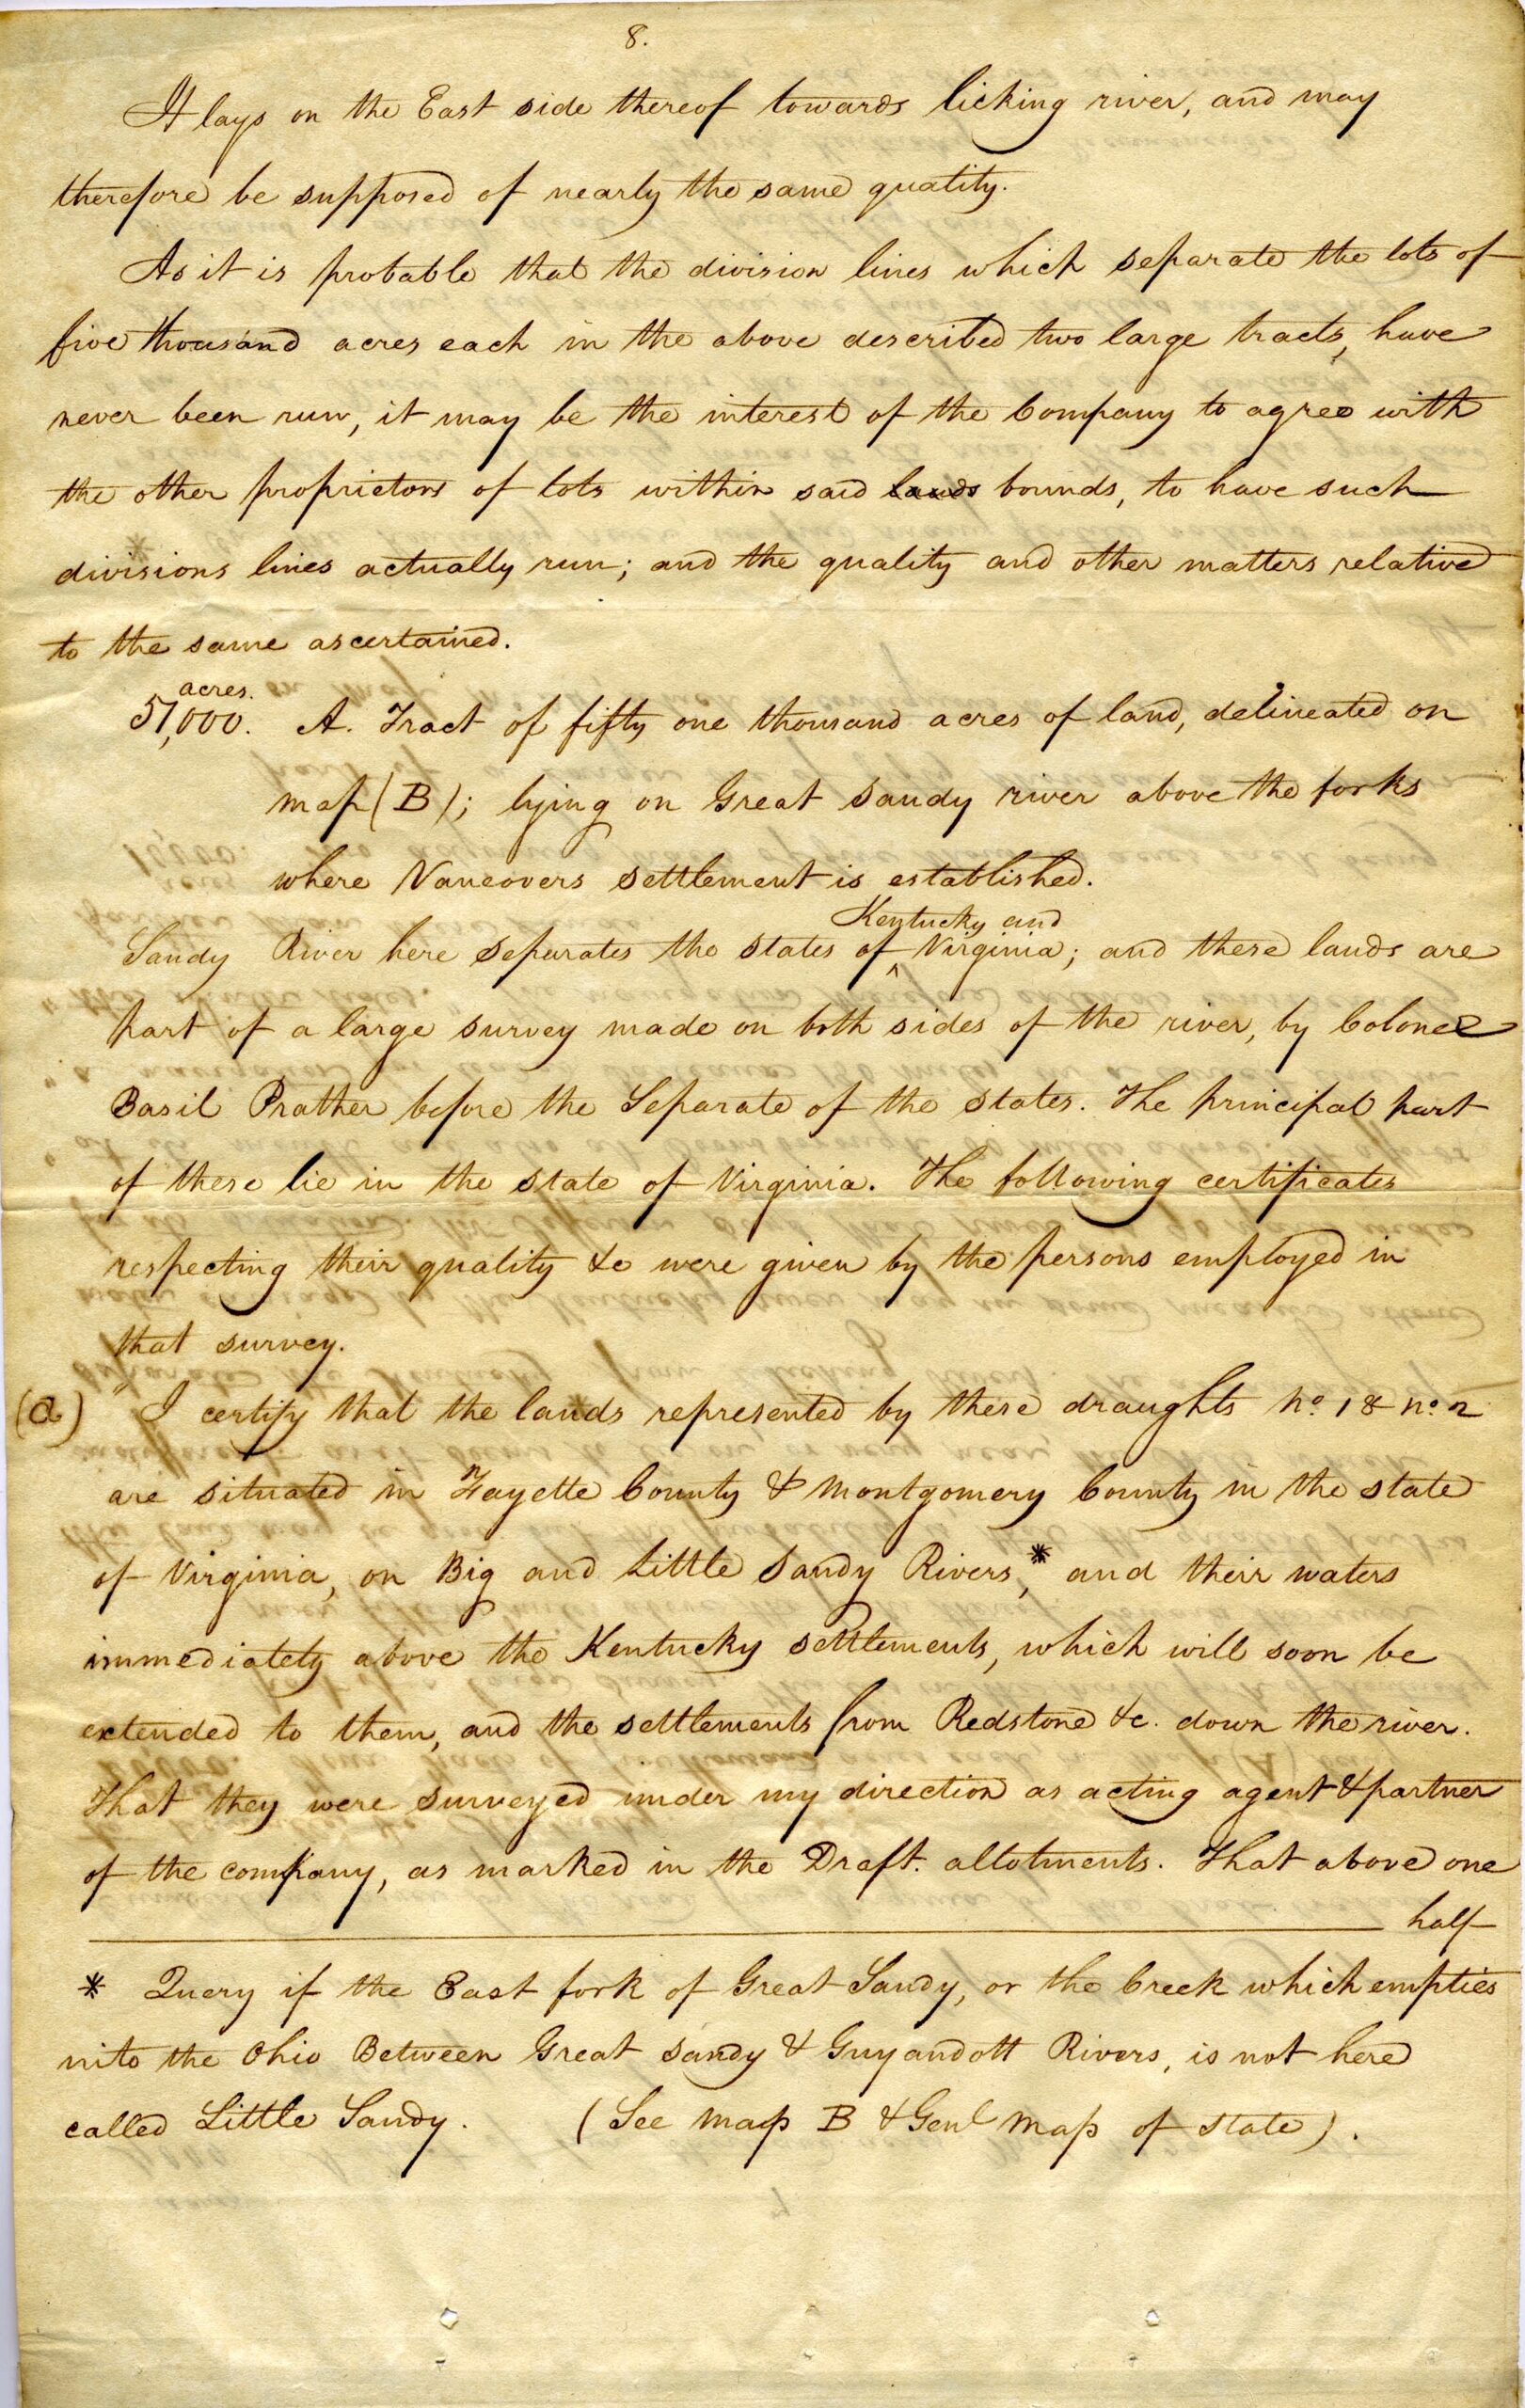 8.
It lays on the East side thereof towards licking river, and may
therefore be supposed of nearly the same quality.
As it is probable that the division lines which separate the lots of
five thousand acres each in the above described two large tracts, have
never been run, it may be the interest of the Company to agree with
the other proprietors of lots within said lands bounds, to have such
divisions lines actually run; and the quality and other matters relative
to the same ascertained.
acres.
51,000. A. Tract of fifty one thousand acres of land, delineated on
map (B); lying on Great Sandy river above the forks
where Vancovers settlement is established.
Kentucky and
Sandy River here separates the states of ^ Virginia; and these lands are
part of a large survey made on both sides of the river, by Colonel
Basil Prather before the Separate of the states. The principal part
of these lie in the state of Virginia. The following certificates
respecting their quality &c were given by the persons employed in
that survey.
(a) " I certify that the lands represented by these draughts No. 1 & No. 2
are situated in Fayette County & Montgomery County in the state
of Virginia, on Big and Little Sandy Rivers,* and their waters
immediately above the Kentucky settlements, which will soon be
extended to them, and the settlements from Redstone &c. down the river.
That they were surveyed under my direction as acting agent & partner
of the company, as marked in the Draft. allotments. That above one
half
* Query if the East fork of Great Sandy, or the Creek which empties
into the Ohio Between Great Sandy & Guyandott Rivers, is not here
called Little Sandy. (See map B & Genl map of state).